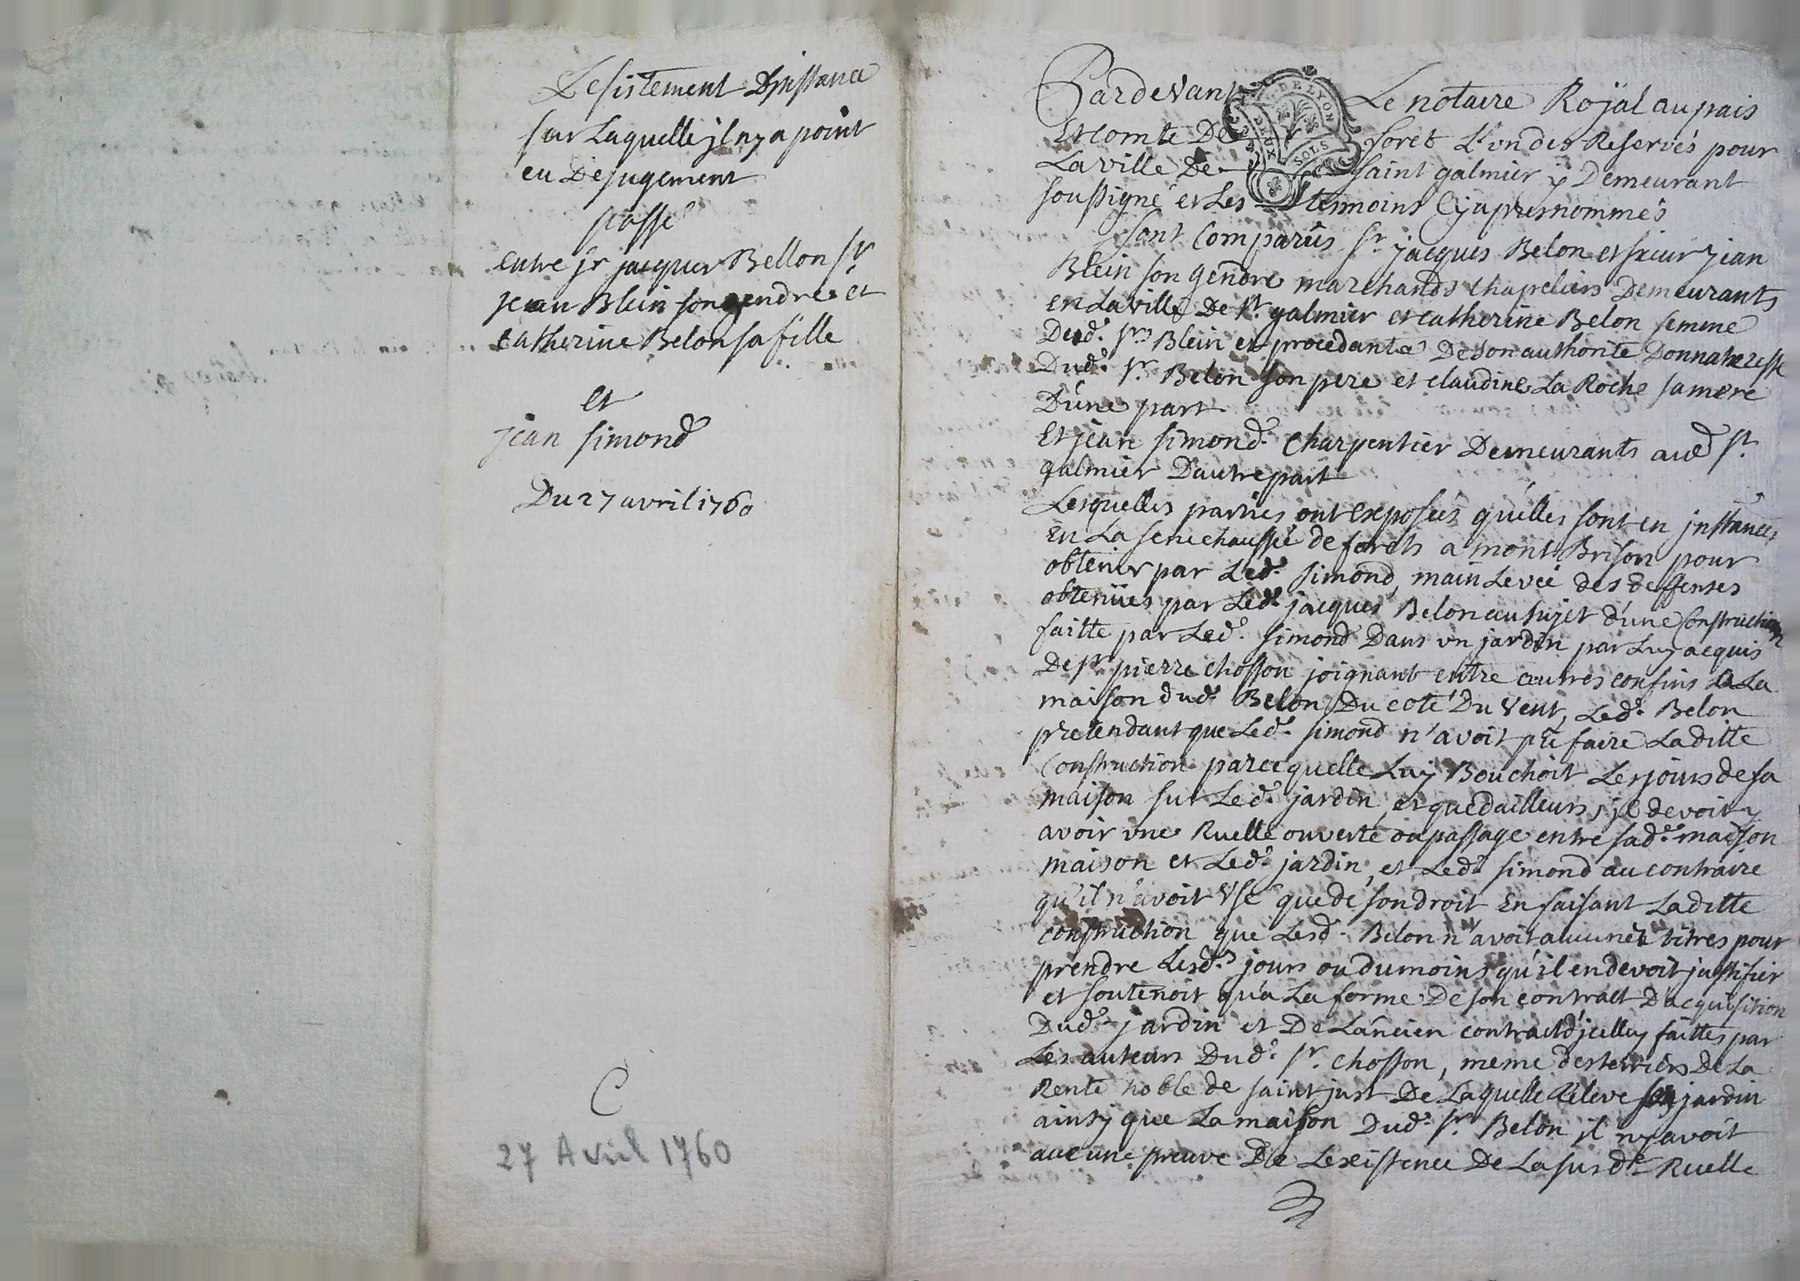 Desistement Dinstance
sur Laquelle jl n'y a point
eu De jugement
passé
entre sr jacques Bellon sr
jean Blein son gendre et
catherine Belon sa fille
et
jean simond
Du 27 avril 1760
C
27 Avril 1760
Pardevant Le notaire Royal au pais
Et comté De forêt L'un des Reservés pour
La ville De saint galmier y Demeurant
soussigné et Les temoins Cy apres nommés
sont Comparus sr jacques Belon et sieur jean
Blein son gendre marchands chapeliers Demeurants
en La ville De st galmier et catherine Belon femme
Dud. sr Blein et procedante De son authorité Donnataresse
Dud. sr Belon son pere et claudine La Roche sa mere
D'une part
Et jean simond charpentier Demeurants aud st
galmier D'autre part
Lesquelles parties ont exposés qu'elles sont en jnstance
En La senechaussée de forets a montBrison pour
obtenir par Led. simond, main Levée des deffenses
obtenües par Led. jacques Belon au sujet d'une Construction
faitte par Led. simond Dans un jardin par Luy acquis
De sr pierre chosson joignant entre autres confins La
maison dud. Belon Du coté Du vent, Led. Belon
pretendant que Led. simond n'avoit pû faire Laditte
Construction parce quelle Luy Bouchoit Les jours de sa
maison sur Led. jardin, et que dailleurs jl devoit y
avoir une Ruelle ouverte ou passage entre sad. maison
maison et Led. jardin, et Led. simond au contraire
qu'il n'avoit usé que de son droit En faisant Laditte
construction que Led. Belon n'avoit aucunes titres pour
prendre Lesd. jours ou du moins qu'il en devoit justifier
et soutenoit qu'a La forme De son contract D'acquisition
Dud. jardin et De L'ancien contract d'jcelluy faittes par
Les auteurs Dud. sr. chosson, meme des terriers De La
Rente noble de saint just De Laquelle Releve jardin
ainsy que La maison Dud. sr. Belon il n'y avoit
aucune preuve De L'existence De La susd. Ruelle